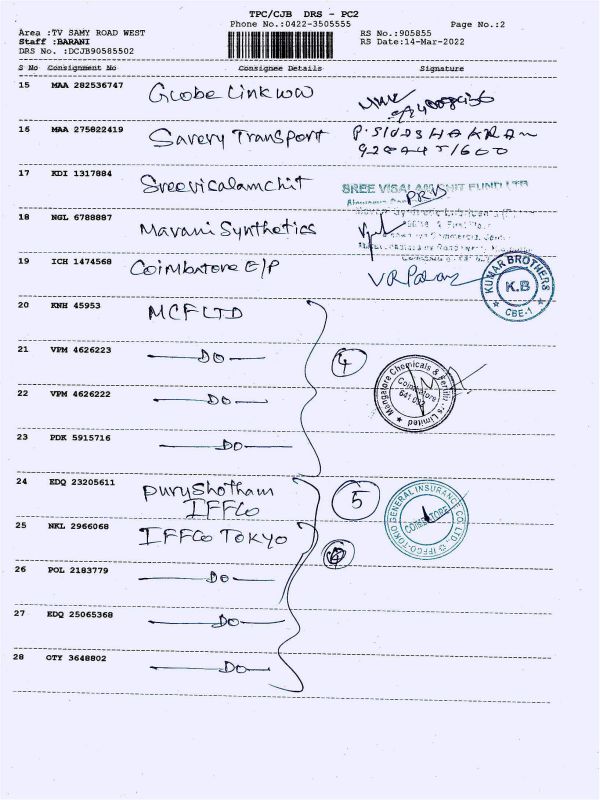 TPC/CJB DRS - PC2
Phone No.:0422-3505555
Page No.:2
Area :TV SAMY ROAD WEST
Staff :BARANI
DRS No. :DCJB90585502
RS No.:905855
RS Date:14-Mar-2022
S No Consignment No Consignee Details Signature
15 MAA 282536747 Globe Link WW
16 MAA 275822419 Savery Transport
17 KDI 1317884 Sreevicalamchit
SREE VISALAM CHIT FUND LTD
18 NGL 6788887 Mavani Synthetics
19 ICH 1474568 Coimbatore E/P
KUMAR BROTHERS
K.B
CBE-1
20 KNH 45953 MCF LTD
21 VPM 4626223 DO
4
22 VPM 4626222 DO
Mangalore Chemicals & Fertilizers Limited
Coimbatore
23 PDK 5915716 DO
24 EDQ 23205611 Puryshotham
IFFCo
5
25 NKL 2966068 IFFCo TOKYO
IFFCO-TOKIO GENERAL INSURANCE CO. LTD.,
COIMBATORE
26 POL 2183779 DO
27 EDQ 25065368 DO
28 OTY 3648802 DO